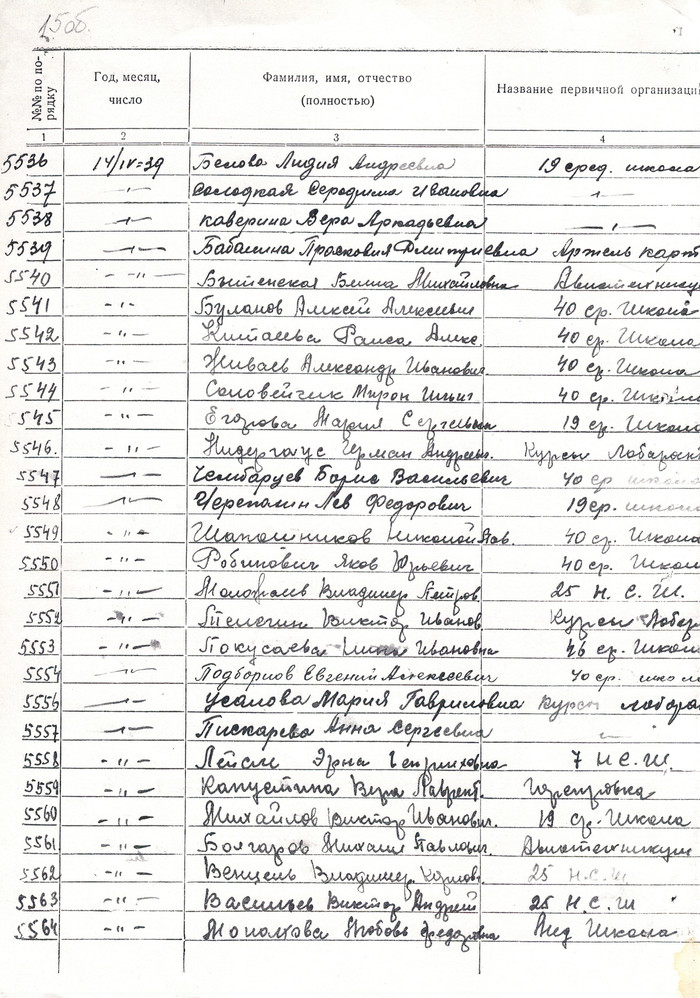 15об.
№№ по по-рядку Год, месяц, число Фамилия, имя, отчество (полностью) Название первичной организаци
1 2 3 4
5536 14/IV=39 Белова Лидия Андреевна 19 сред. школа
5537 -"- Солодкая Серафима Ивановна -"-
5538 -"- Каверина Вера Аркадьевна -"-
5539 -"- Прасковия Дмитриевна Артель карт
5540 -"- Михайловна Авиатехникум
5541 -"- Буланов Алексей Алексеевич 40 ср. Школа
5542 -"- Китаева Раиса Алекс. 40 ср. Школа
5543 -"- Живаев Александр Иванович 40 ср. Школа
5544 -"- Соловейчик Мирон Ильич 40 ср. Школа
5545 -"- Егорова Мария Сергеевна 19 ср. Школа
5546. -"- Нидергаус Герман Андреев. Курсы Лаборан
5547 -"- Чембарцев Борис Васильевич 40 ср школа
5548 -"- Черепахин Лев Федорович 19 ср. школа
5549 -"- Шапошников Николай Пав. 40 ср. Школа
5550 -"- Рабинович Яков Юрьевич 40 ср. Школ
5551 -"- Малафаев Владимир Петров. 25 Н. С. Ш.
5552 -"- Телегин Виктор Иванов. Курсы Лабор
5553 -"- Покусаева Нина Ивановна 46 ср. Школ
5554 -"- Подборнов Евгений Алексеевич 40 ср. школ
5556 -"- Усанова Мария Гавриловна Курсы лабора
5557 -"- Пискарева Анна Сергеевна -"-
5558 -"- Эрна Генриховна 7 Н.С.Ш.
5559 -"- Капустина Вера Лаврент.
5560 -"- Михайлов Виктор Иванович. 19 ср. Школа
5561 -"- Болгаров Михаил Павлович. Авиатехникум
5562 -"- Венцель Владимир Карлов. 25 Н.С.Ш
5563 -"- Васильев Виктор Андрей 25 Н.С.Ш
5564 -"- Любовь Федоровна Школа